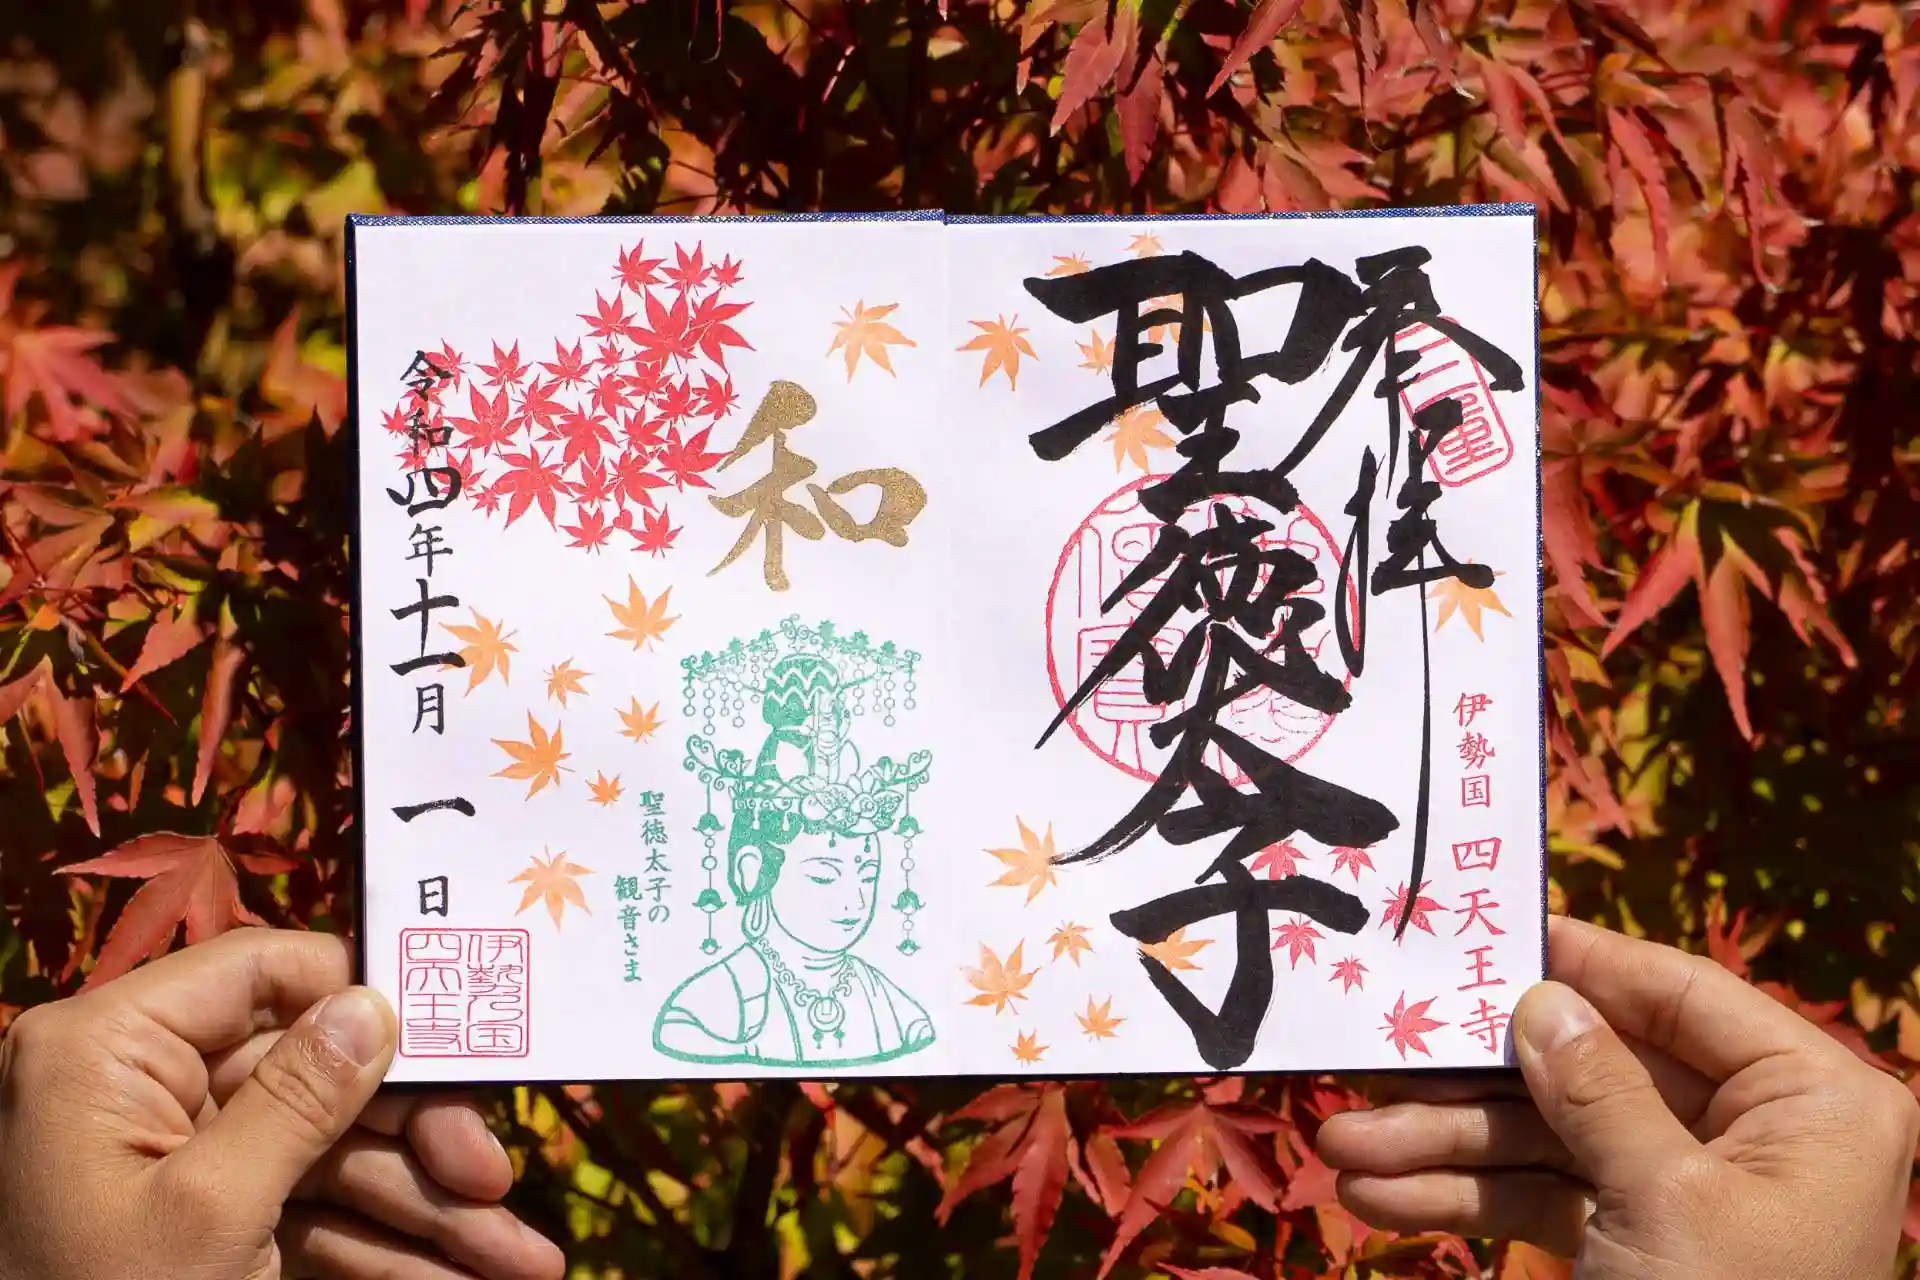 奉拝
三重
聖徳太子
伊勢国 四天王寺
和
聖徳太子の
観音さま
令和四年十一月一日
伊勢国
四天王寺